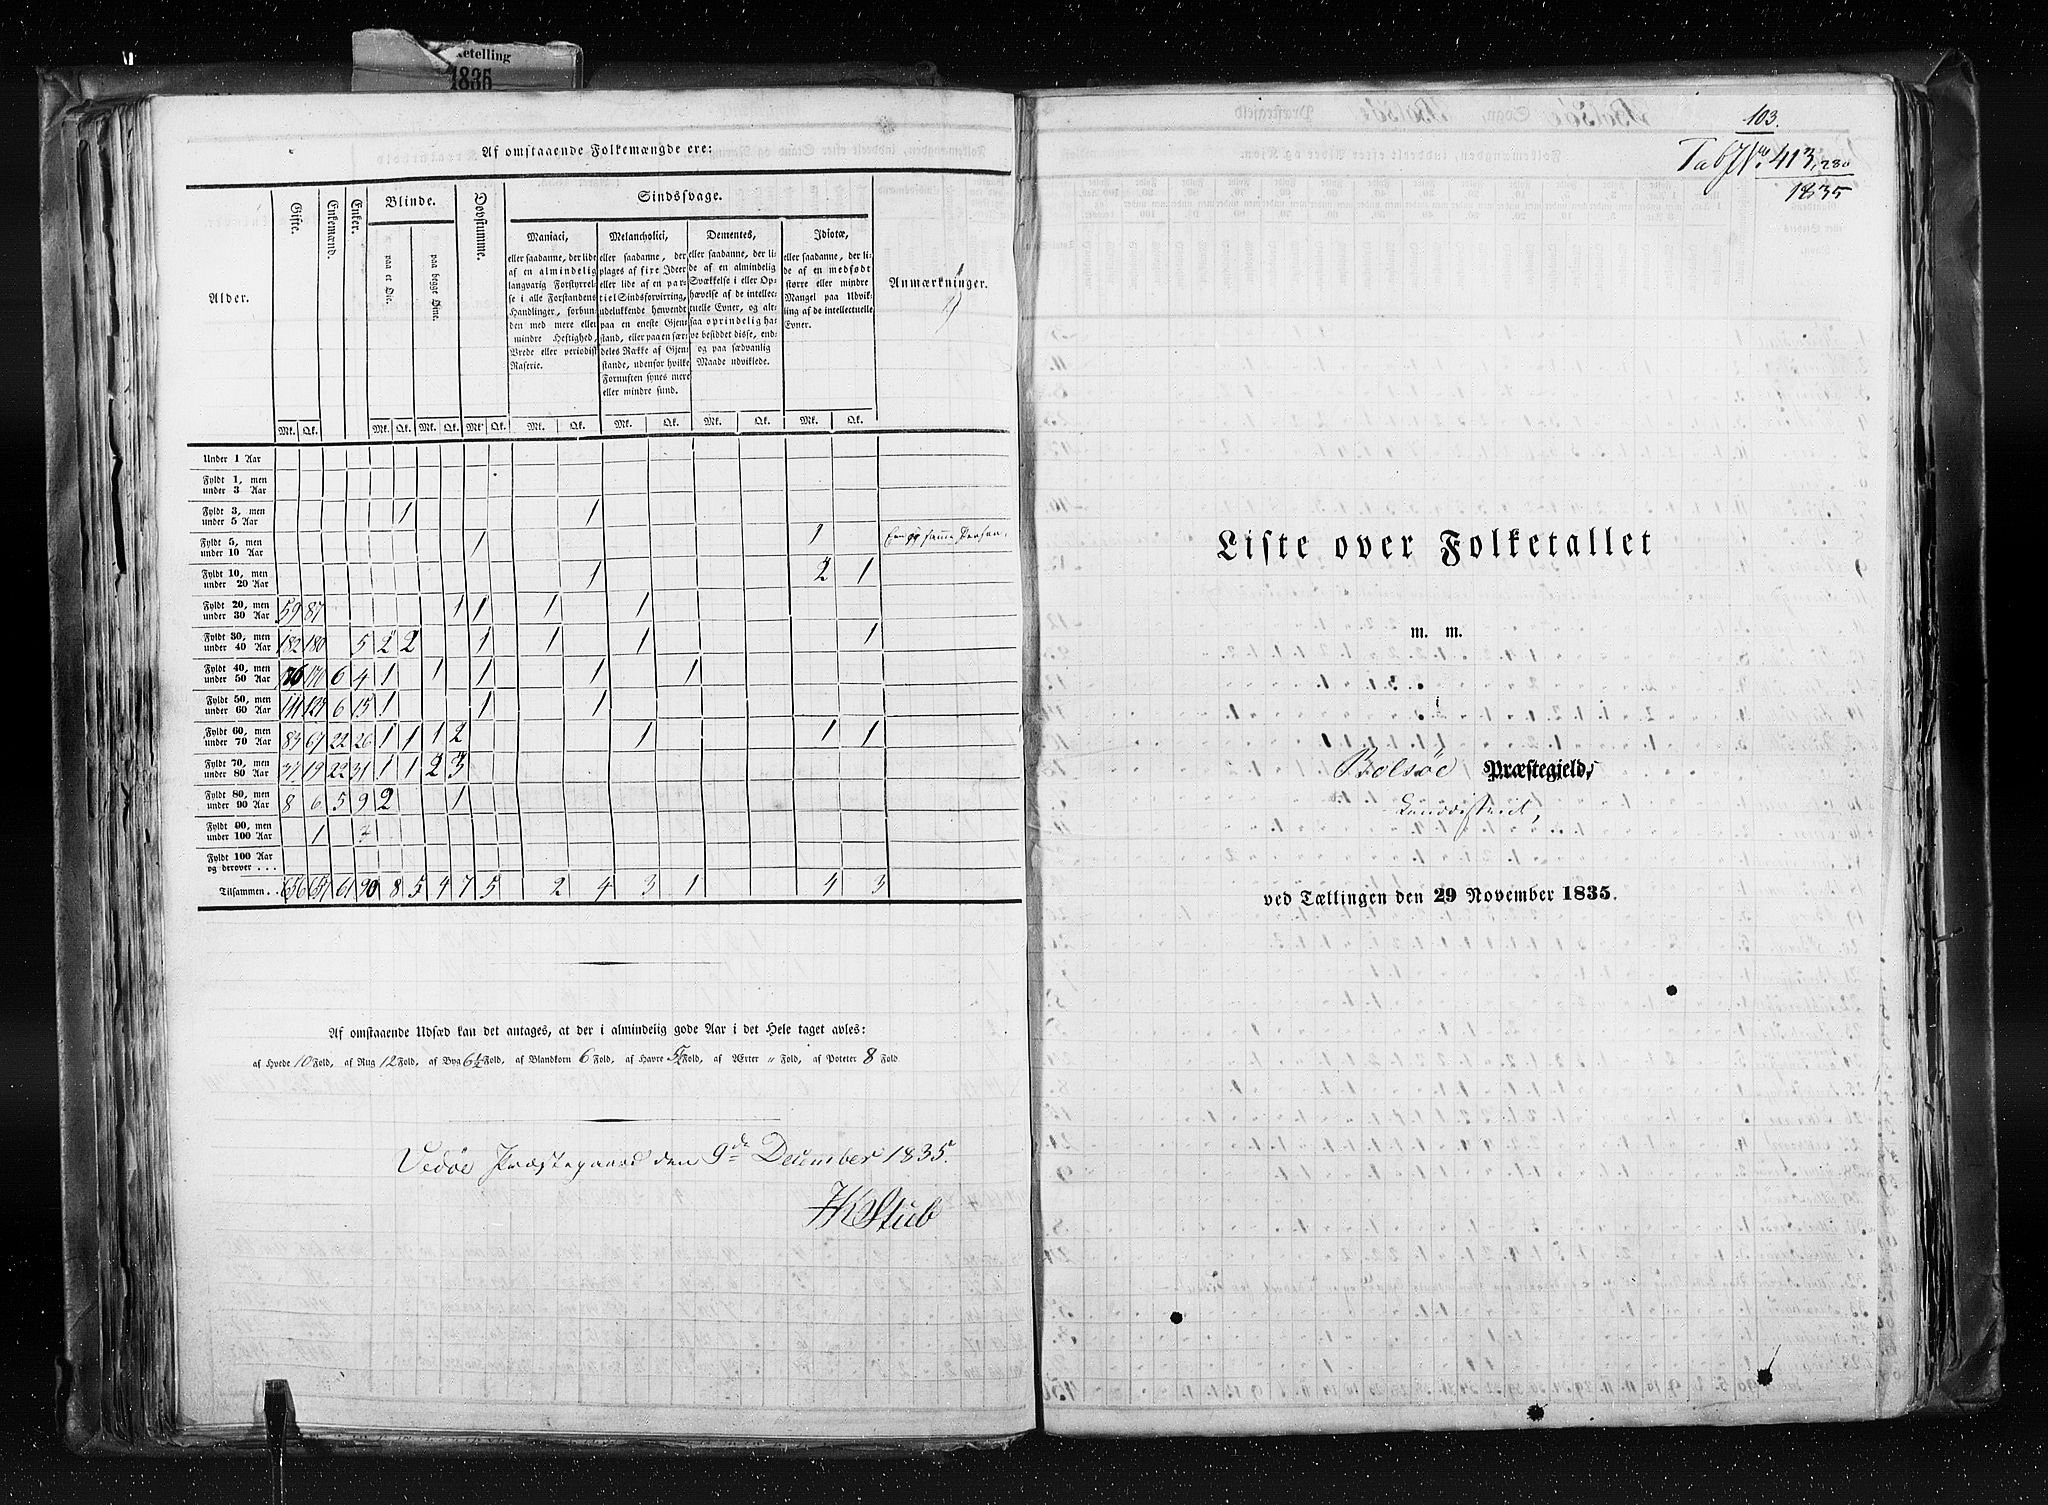 ketelling
1835
Af omstaaende Folkemængde ere:
Alder.
Gifte.
Enkemænd.
Enker.
Blinde.
paa et Øie.
paa begge Øine.
Døvstumme.
Sindssvage.
Maniaci,
eller saadanne, der lide
af en almindelig
langvarig Forstyrrel-
se i alle Forstandens
Handlinger, forbun-
den med mere eller
mindre Heftighed,
Vrede eller periodisk
Raserie.
Melancholici,
eller saadanne, der
plages af fixe Ideer
eller lide af en par-
tiel Sindsforvirring,
udelukkende henvendt
paa en eneste Gjen-
stand, eller paa en sær-
deles Række af Gjen-
stande, udenfor hvilke
Fornuften synes mere
eller mindre sund.
Dementes,
eller saadanne, der li-
de af en almindelig
Svækkelse i eller Op-
hævelse af de intellec-
tuelle Evner, og alt-
saa oprindelig ha-
ve besiddet disse, end-
og paa sædvanlig
Maade udviklede.
Idiotæ,
eller saadanne, der li-
de af en medfødt
større eller mindre
Mangel paa Udvik-
ling af de intellectuelle
Evner.
Anmærkninger.
Mk. Qk. Mk. Qk. Mk. Qk. Mk. Qk. Mk. Qk. Mk. Qk. Mk. Qk. Mk. Qk.
Under 1 Aar
Fyldt 1, men
under 3 Aar
Fyldt 3, men
under 5 Aar 1 1
Fyldt 5, men
under 10 Aar 1 1 samme Person.
Fyldt 10, men
under 20 Aar 1 2 1
Fyldt 20, men
under 30 Aar 59 87 1 1 1 1
Fyldt 30, men
under 40 Aar 182 180 5 2 2 1 1 1 1
Fyldt 40, men
under 50 Aar 6 4 1 1 1 1 1
Fyldt 50, men
under 60 Aar 6 15 1 1 1
Fyldt 60, men
under 70 Aar 83 61 22 26 1 1 1 2 1 1 1
Fyldt 70, men
under 80 Aar 37 19 22 31 1 1 2 3
Fyldt 80, men
under 90 Aar 8 6 5 9 2 1
Fyldt 90, men
under 100 Aar 1
Fyldt 100 Aar
og derover . . .
Tilsammen . . 656 61 90 8 5 4 7 5 2 4 3 1 4 3
Af omstaaende Udsæd kan det antages, at der i almindelig gode Aar i det Hele taget avles:
af Hvede 10 Fold, af Rug 12 Fold, af Byg 6½ Fold, af Blandkorn 6 Fold, af Havre 5½ Fold, af Ærter " Fold, af Poteter 8 Fold.
Vedøe Præstegaard den 9de December 1835.
HK Stub
103.
Tab No. 413, 280
1835
Liste over Folketallet
m. m.
i
Bolsøe Præstegjelds
Landdistrict,
ved Tællingen den 29 November 1835.